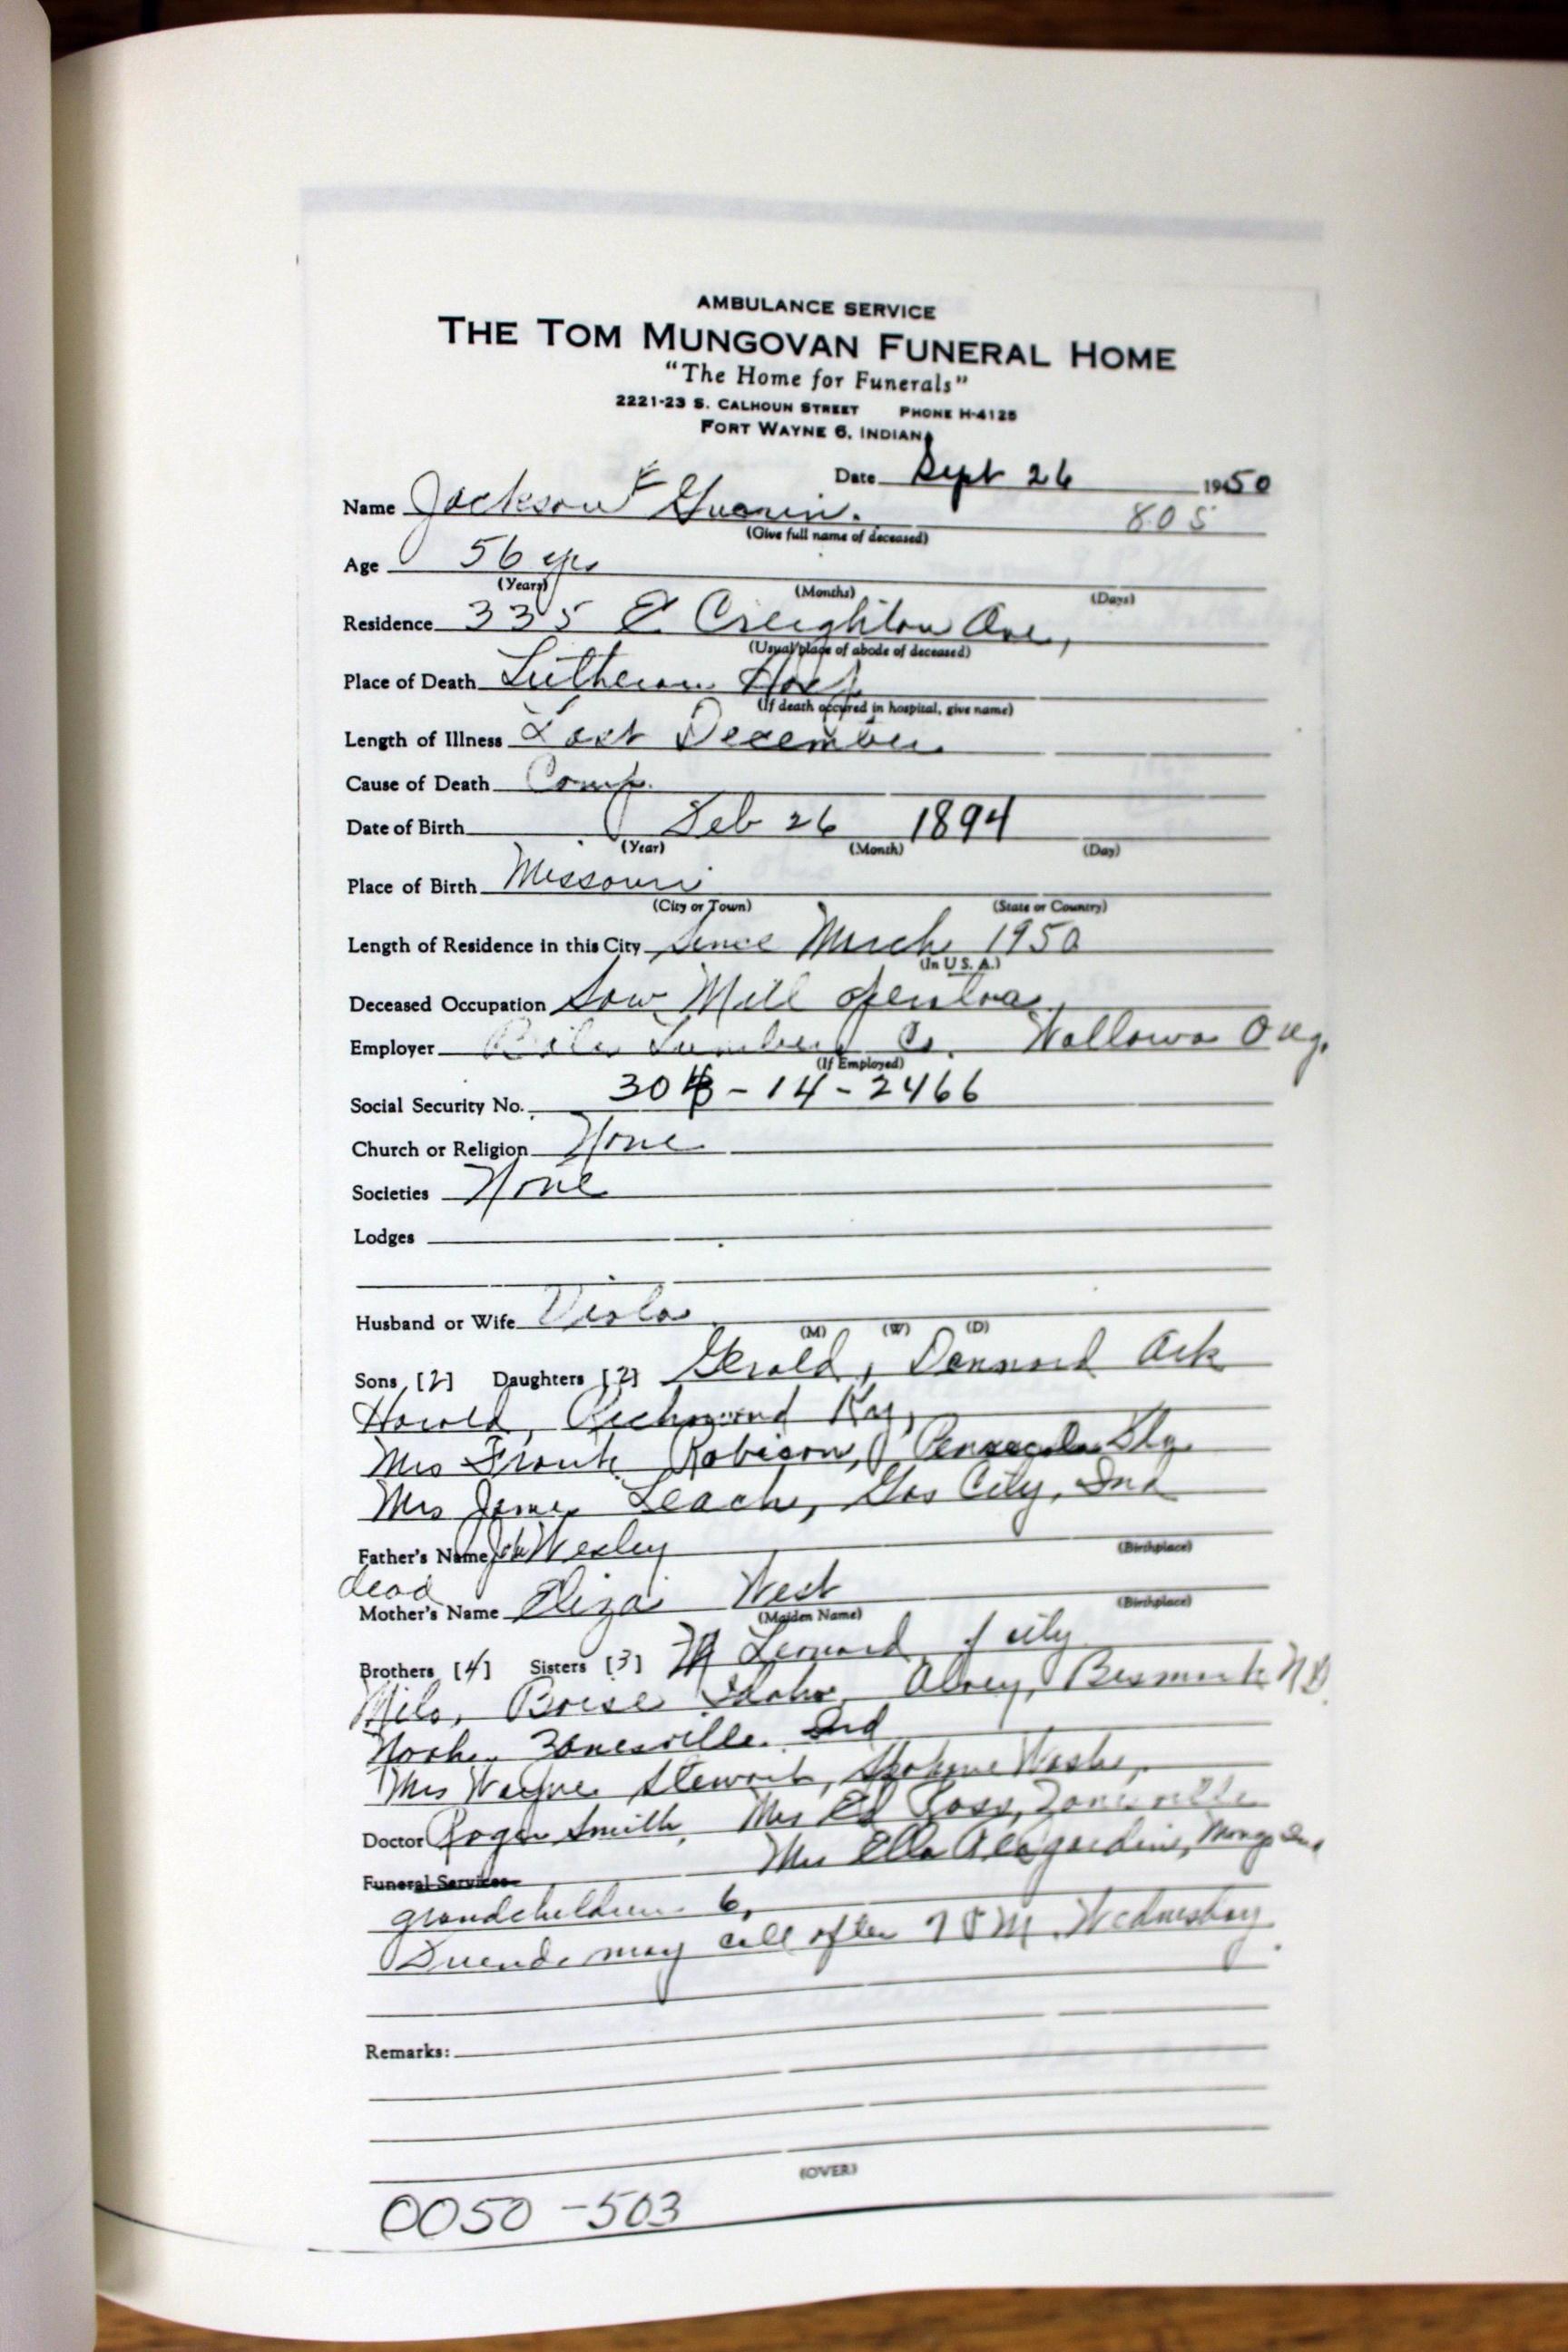 AMBULANCE SERVICE
THE TOM MUNGOVAN FUNERAL HOME
"The Home for Funerals"
2221-23 S. CALHOUN STREET PHONE H-4125
FORT WAYNE 6, INDIANA
Date Sept 26 1950
Name Jackson F 805
(Give full name of deceased)
Age 56 yrs
(Years) (Months) (Days)
Residence 335 E Creighton Ave,
(Usual place of abode of deceased)
Place of Death Lutheran Hosp
(If death occured in hospital, give name)
Length of Illness Last December
Cause of Death Comp.
Date of Birth Feb 26 1894
(Year) (Month) (Day)
Place of Birth Missouri
(City or Town) (State or Country)
Length of Residence in this City Since March 1950
(In U S. A.)
Deceased Occupation Saw Mill operator
Employer Lumber Co. Wallowa Oreg.
(If Employed)
Social Security No. -14-2466
Church or Religion None
Societies None
Lodges
Husband or Wife Viola
(M) (W) (D)
Sons [2] Daughters [2] Gerald, Dennard Ark
Harold, Richmond Ky,
Mrs Frank Robison, Pensacola Fla
Mrs James Leach, Gas City, Ind
Father's Name John Wesley
(Birthplace)
dead
Mother's Name Eliza West
(Maiden Name) (Birthplace)
Brothers [4] Sisters [3] Leonard of city
Milo, Boise Idaho, Alvey, Bismark N D.
Noah, Zanesville Ind
Mrs Wayne Stewart, Spokane Wash,
Doctor Roger Smith, Mrs Ed Ross, Zanesville
Funeral Services Mrs Ella Mongo Ind
grandchildren 6,
Friends may call after 7 P M. Wednesday.
Remarks:
(OVER)
0050-503